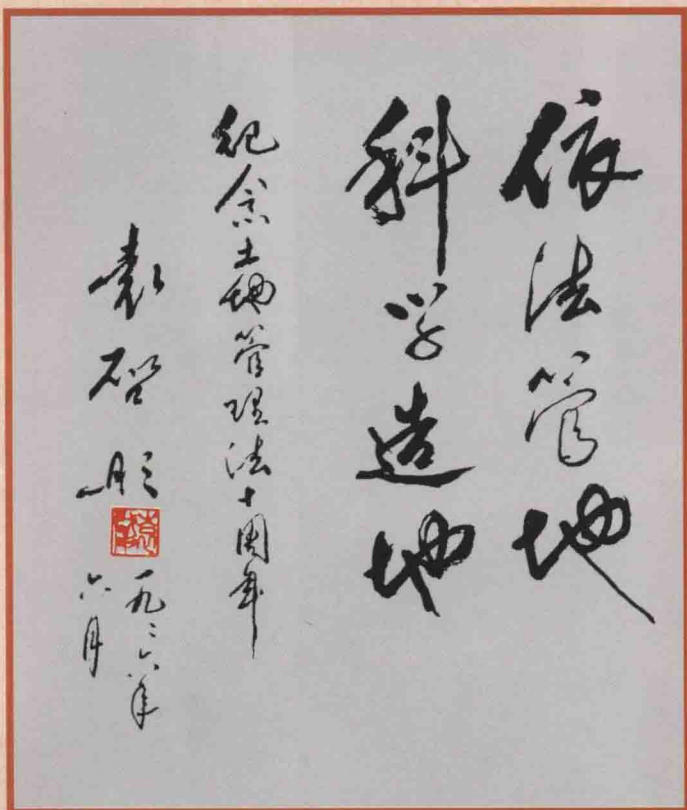 依法管地
科学造地
纪念土地管理法十周年
袁启彤
一九九六年
六月